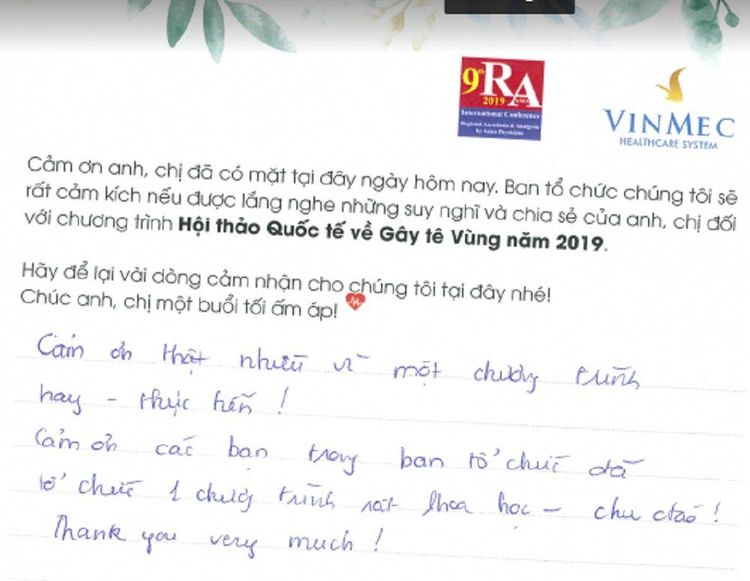 9th RA
2019 ASIA
International Conference
Regional Anesthesia & Analgesia
by Asian Physicians
VINMEC
HEALTHCARE SYSTEM
Cảm ơn anh, chị đã có mặt tại đây ngày hôm nay. Ban tổ chức chúng tôi sẽ
rất cảm kích nếu được lắng nghe những suy nghĩ và chia sẻ của anh, chị đối
với chương trình Hội thảo Quốc tế về Gây tê Vùng năm 2019.
Hãy để lại vài dòng cảm nhận cho chúng tôi tại đây nhé!
Chúc anh, chị một buổi tối ấm áp!
Cảm ơn thật nhiều vì một chương trình
hay - thực tiễn!
Cảm ơn các bạn trong ban tổ chức đã
tổ chức 1 chương trình rất khoa học - chu đáo!
Thank you very much!